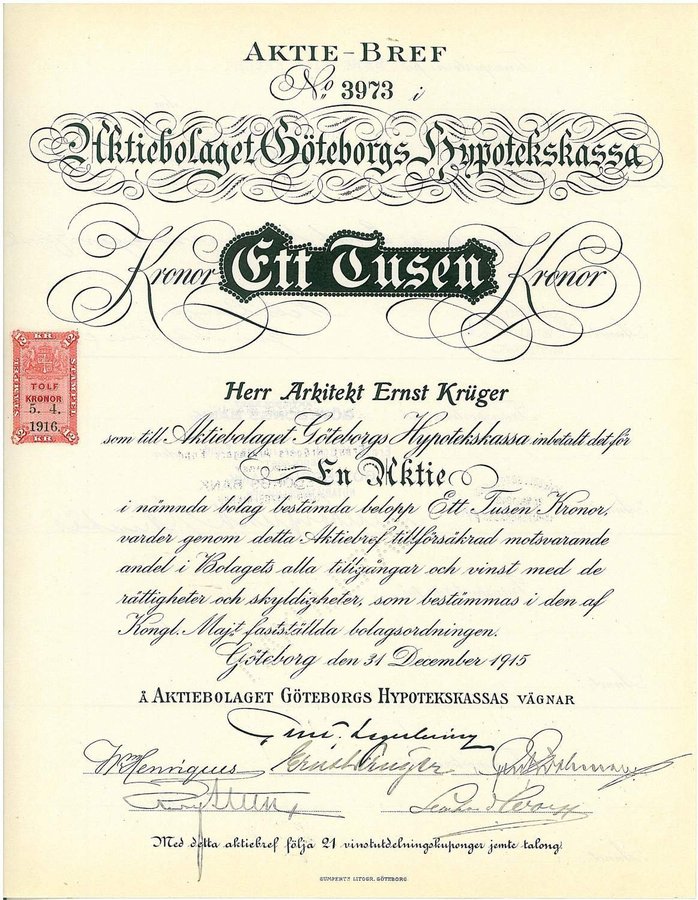 AKTIE-BREF
No 3973 i
Aktiebolaget Göteborgs Hypotekskassa
Kronor Ett Tusen Kronor
12 KR 12
STÄMPEL STÄMPEL
TOLF
KRONOR
5. 4.
1916.
12 KR 12
Herr Arkitekt Ernst Krüger
som till Aktiebolaget Göteborgs Hypotekskassa inbetalt det för
En Aktie
i nämnda bolag bestämda belopp Ett Tusen Kronor,
varder genom detta Aktiebref tillförsäkrad motsvarande
andel i Bolagets alla tillgångar och vinst med de
rättigheter och skyldigheter, som bestämmas i den af
Kongl. Maj:t fastställda bolagsordningen.
Göteborg den 31 December 1915
Å AKTIEBOLAGET GÖTEBORGS HYPOTEKSKASSAS VÄGNAR
Henriques Ernst Krüger
Med detta aktiebref följa 21 vinstutdelningskuponger jemte talong.
GUMPERTS LITOGR. GÖTEBORG